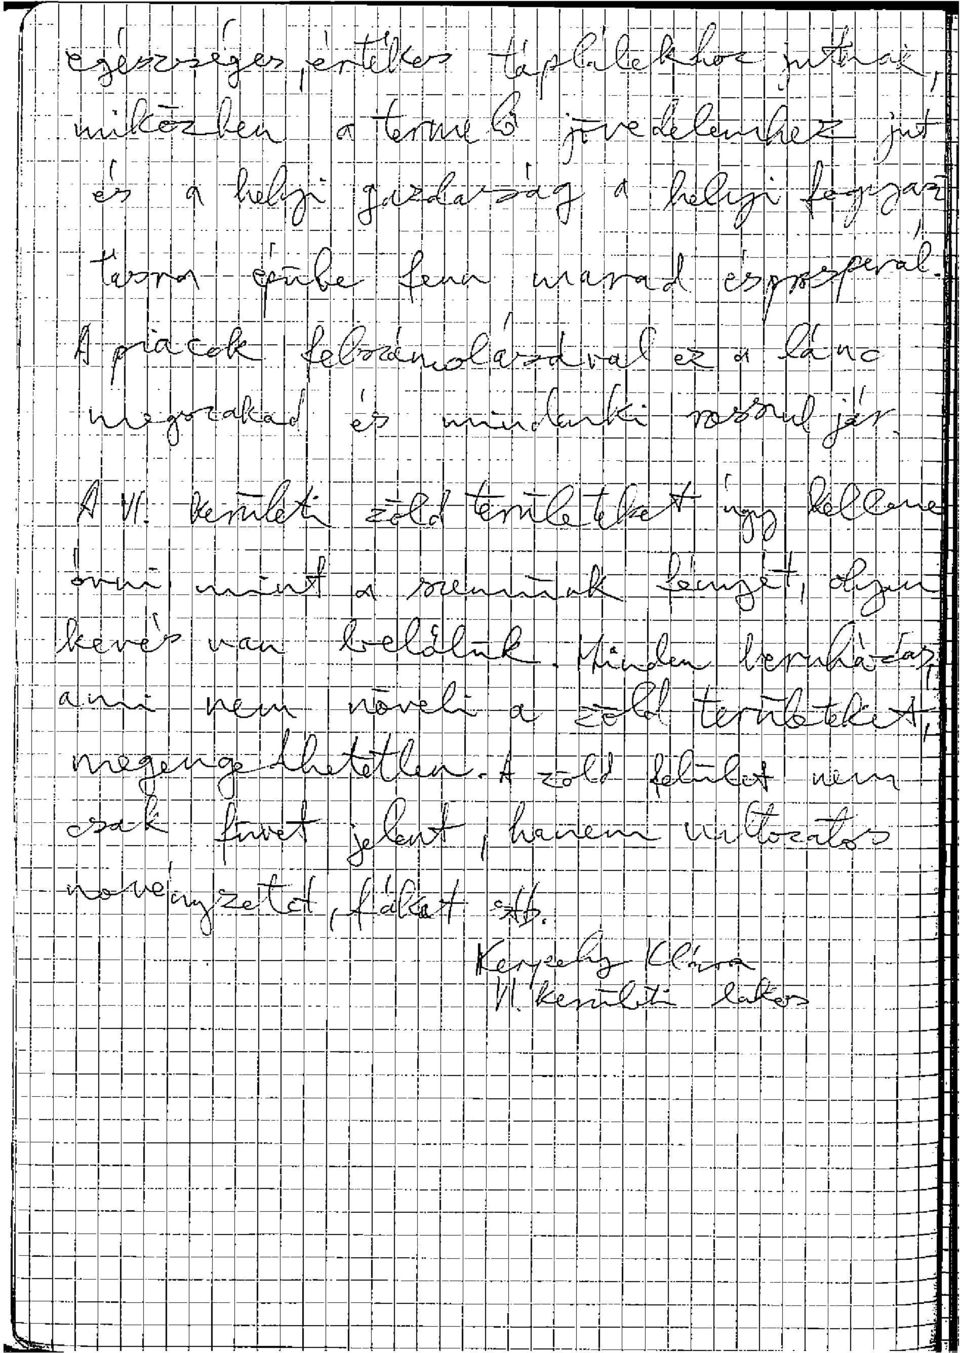 egészséges, értékes táplálékhoz jutnak,
miközben a termelő jövedelemhez jut
és a helyi gazdaság a helyi fogyasz
tásra épülve fenn marad és prosperál.
A piacok felszámolásával ez a lánc
megszakad és mindenki rosszul jár.
A VI. kerületi zöld területeket úgy kellene
óvni, mint a szemünk fényét, olyan
kevés van belőlük. Minden beruházás,
ami nem növeli a zöld területeket,
megengedhetetlen. A zöld felület nem
csak füvet jelent, hanem változatos
növényzetet, fákat stb.
Kerpely Klára
VI. kerületi lakos